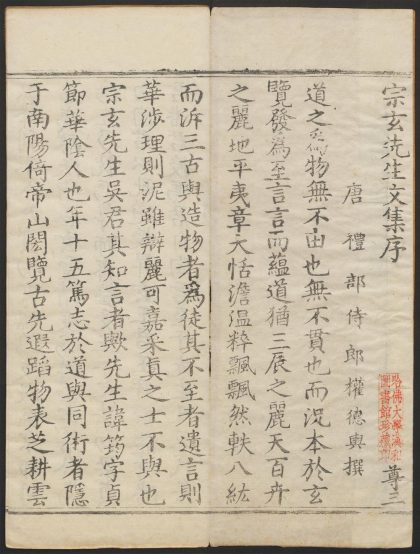 宗玄先生文集序
尊三
唐禮部侍郎權德輿撰
哈佛大學漢和圖書館珍藏印
道之爲物無不由也無不貫也而況本於玄
覽發爲至言言而蘊道猶三辰之麗天百卉
之麗地平夷章大恬澹溫粹飄飄然軼八紘
而泝三古與造物者爲徒其不至者遺言則
華涉理則泥雖辯麗可嘉采真之士不與也
宗玄先生吳君其知言者歟先生諱筠字貞
節華陰人也年十五篤志於道與同術者隱
于南陽倚帝山閎覽古先遐蹈物表芝耕雲